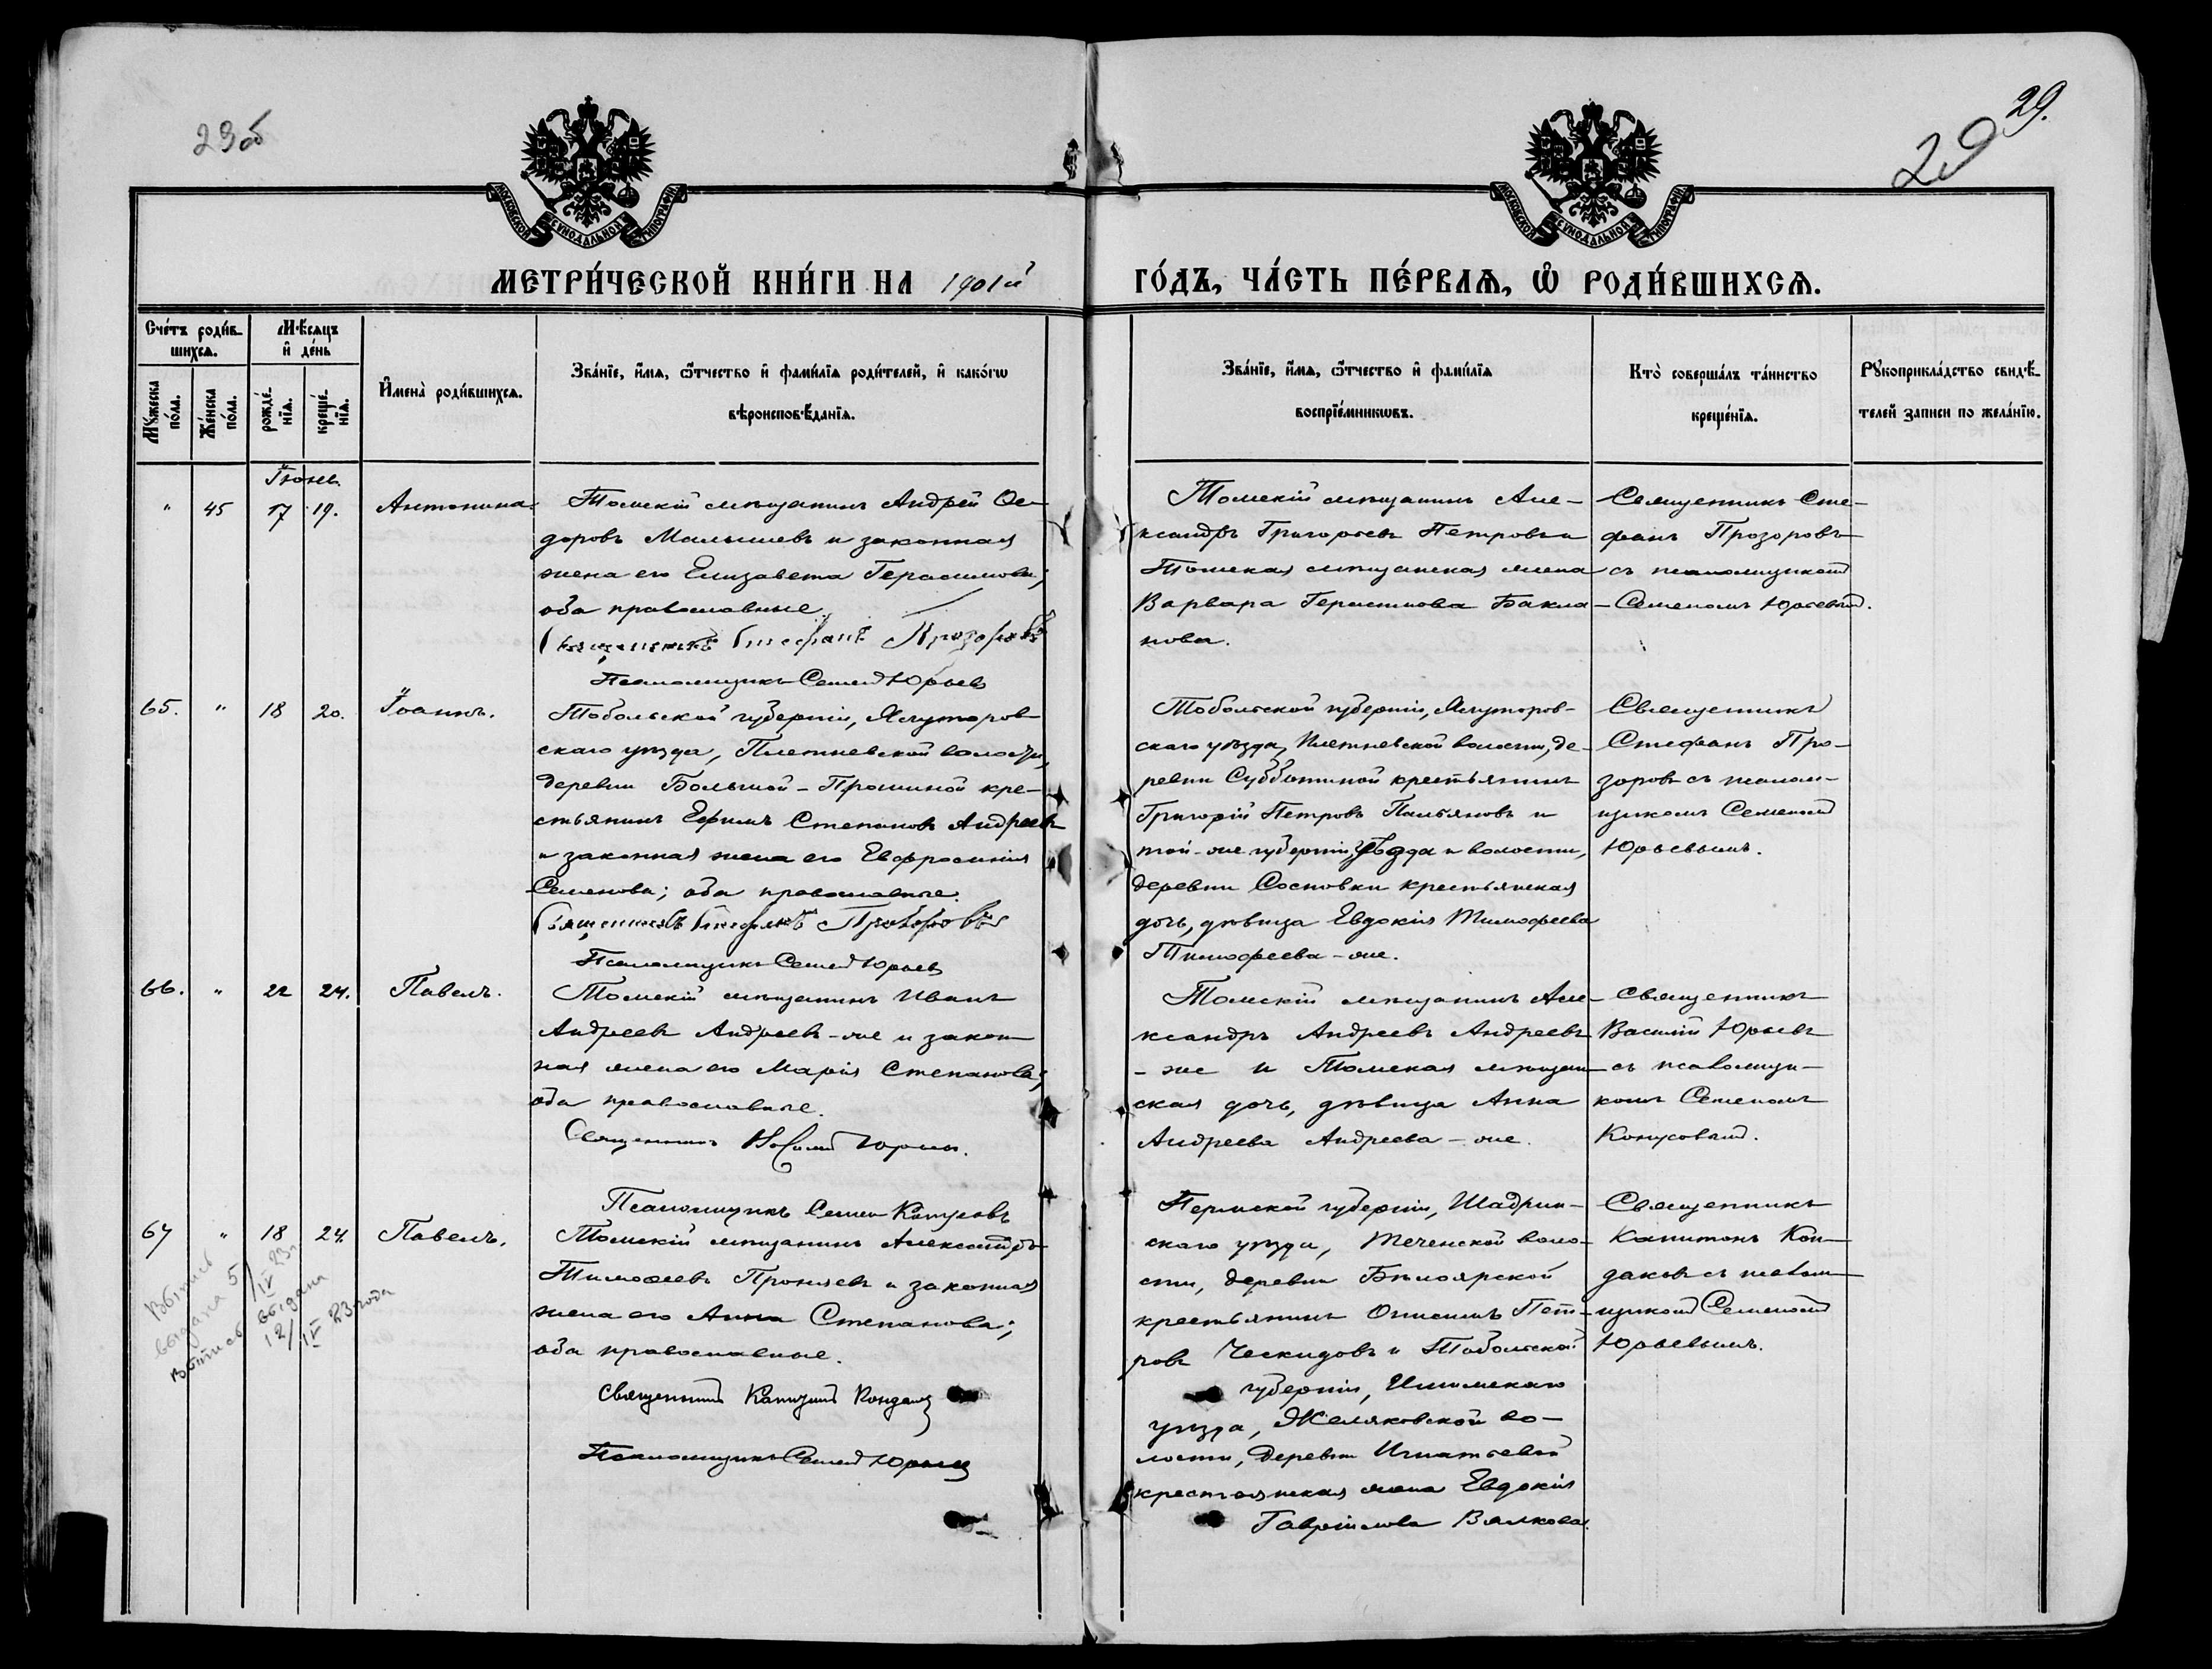 29.
29
29об
МОСКОВСКОЙ СѴНОДАЛЬНОЙ ТИПОГРАФІИ
МОСКОВСКОЙ СѴНОДАЛЬНОЙ ТИПОГРАФІИ
МЕТРИ́ЧЕСКОЙ КНИ́ГИ НА 1901й
ГО́ДЪ, ЧА́СТЬ ПЕ́РВАѦ, Ѽ РОДИ́ВШИХСѦ.
Сче́тъ роди́в-
шихсѧ.
Мꙋ́жеска
по́ла.
Же́нска
по́ла.
Мѣ́сѧцъ
и҆ де́нь
рожде́-
нїѧ.
креще́-
нїѧ.
И҆мена̀ роди́вшихсѧ.
Зва́нїе, и҆́мѧ, ѻ҆́тчество и҆ фамі́лїѧ роди́телей, и҆ како́гѡ
вѣроисповѣ́данїѧ.
Зва́нїе, и҆́мѧ, ѻ҆́тчество и҆ фамі́лїѧ
воспрїе́мникѡвъ.
Кто̀ соверша́лъ та́инство
креще́нїѧ.
Рꙋкоприкла́дство свидѣ́-
телей записи по жела́нїю.
Іюнь
" 45 17 19. Антонина
Томскій мѣщанинъ Андрей Ѳе-
доровъ Малышевъ и законная
жена его Елизавета Герасимова;
оба православные.
Священникъ Стефанъ Прозоровъ
Псаломщикъ Семен Юрьев
Томскій мѣщанинъ Але-
ксандръ Григорьевъ Петровъ и
Томская мѣщанская жена
Варвара Бакла-
нова.
Священникъ Сте-
фанъ Прозоровъ
съ псаломщикомъ
Семеномъ Юрьевым.
65. " 18 20. Іоаннъ.
Тобольской губерніи, Ялуторов-
скаго уѣзда, Плетневской волости,
деревни Большой-Прониной кре-
стьянинъ Ефимъ Степановъ Андреевъ
и законная жена его Евфросинія
Семенова; оба православные.
Священникъ Стефанъ Прозоровъ
Псаломщикъ Семен Юрьев
Тобольской губерніи, Ялуторов-
скаго уѣзда, Плетневской волости, де-
ревни Субботиной крестьянинъ
Григорій Петровъ и
той-же губерніи, уѣзда и волости,
деревни Сосновки крестьянская
дочь, дѣвица Евдокія Тимофеева
Тимофеева-же.
Священникъ
Стефанъ Про-
зоровъ съ псалом-
щикомъ Семеном
Юрьевымъ.
66. " 22 24. Павелъ.
Томскій мѣщанинъ Иванъ
Андреевъ Андреевъ-же и закон-
ная жена его Марія Степанова;
оба православные.
Священникъ Василій Юрьевъ.
Псаломщикъ Семен Конусовъ
Томскій мѣщанинъ Але-
ксандръ Андреевъ Андреевъ
-же и Томская мѣщан-
ская дочь, дѣвица Анна
Андреева Андреева-же.
Священникъ
Василій Юрьевъ
съ псаломщи-
комъ Семеномъ
Конусовым.
67 " 18 24. Павелъ.
Томскій мѣщанинъ Александръ
Тимофеевъ и законная
жена его Анна Степанова;
оба православные.
Священникъ Капитонъ Кондаковъ
Псаломщикъ Семен Юрьев
Пермской губерніи, Шадрин-
скаго уѣзда, Теченской воло-
сти, деревни Бѣлоярской
крестьянинъ Онисимъ Пет-
ровъ Ческидовъ и Тобольской
губерніи, Ишимскаго
уѣзда, Жиляковской во-
лости, деревни Игнатьевой
крестьянская жена Евдокія
Гавріилова Вялкова.
Священникъ
Капитонъ Кон-
даковъ съ псалом-
щиком Семеном
Юрьевымъ.
Выпись
выдана 5/IV 23г.
Выпись выдана
12/IV 23 года